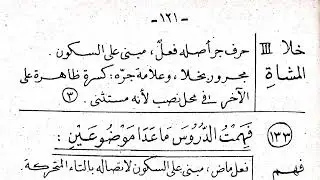 - ١٢١ -
خلا III حرف جر أصله فعلٌ ، مبني على السكون .
المشاةِ مجرور بخلا ، وعلامة جرّه : كسرة ظاهرة على
الآخر ، في محل نصب لأنه مستثنى . ③
(١٣٣) فَهِمْتُ الدُّرُوسَ مَا عَدَا مَوْضُوعَيْنِ :
فهم فعل ماض ، مبني على السكون لاتصاله بالتاء المتحركة